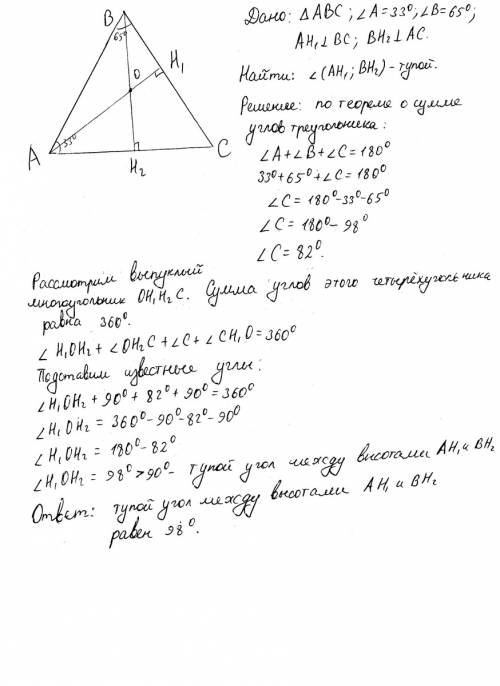 B
65°
O
H₁
33°
A
H₂
C
Дано: △ABC; ∠A=33°; ∠B=65°;
AH₁⊥BC; BH₂⊥AC.
Найти: ∠(AH₁; BH₂)-тупой.
Решение: по теореме о сумме
углов треугольника:
∠A+∠B+∠C=180°
33°+65°+∠C=180°
∠C=180°-33°-65°
∠C=180°-98°
∠C=82°.
Рассмотрим выпуклый
многоугольник OH₁H₂C. Сумма углов этого четырёхугольника
равна 360°.
∠H₁OH₂+∠OH₂C+∠C+∠CH₁O=360°
Подставим известные углы:
∠H₁OH₂+90°+82°+90°=360°
∠H₁OH₂=360°-90°-82°-90°
∠H₁OH₂=180°-82°
∠H₁OH₂=98°>90°- тупой угол между высотами AH₁ и BH₂
Ответ: тупой угол между высотами AH₁ и BH₂
равен 98°.